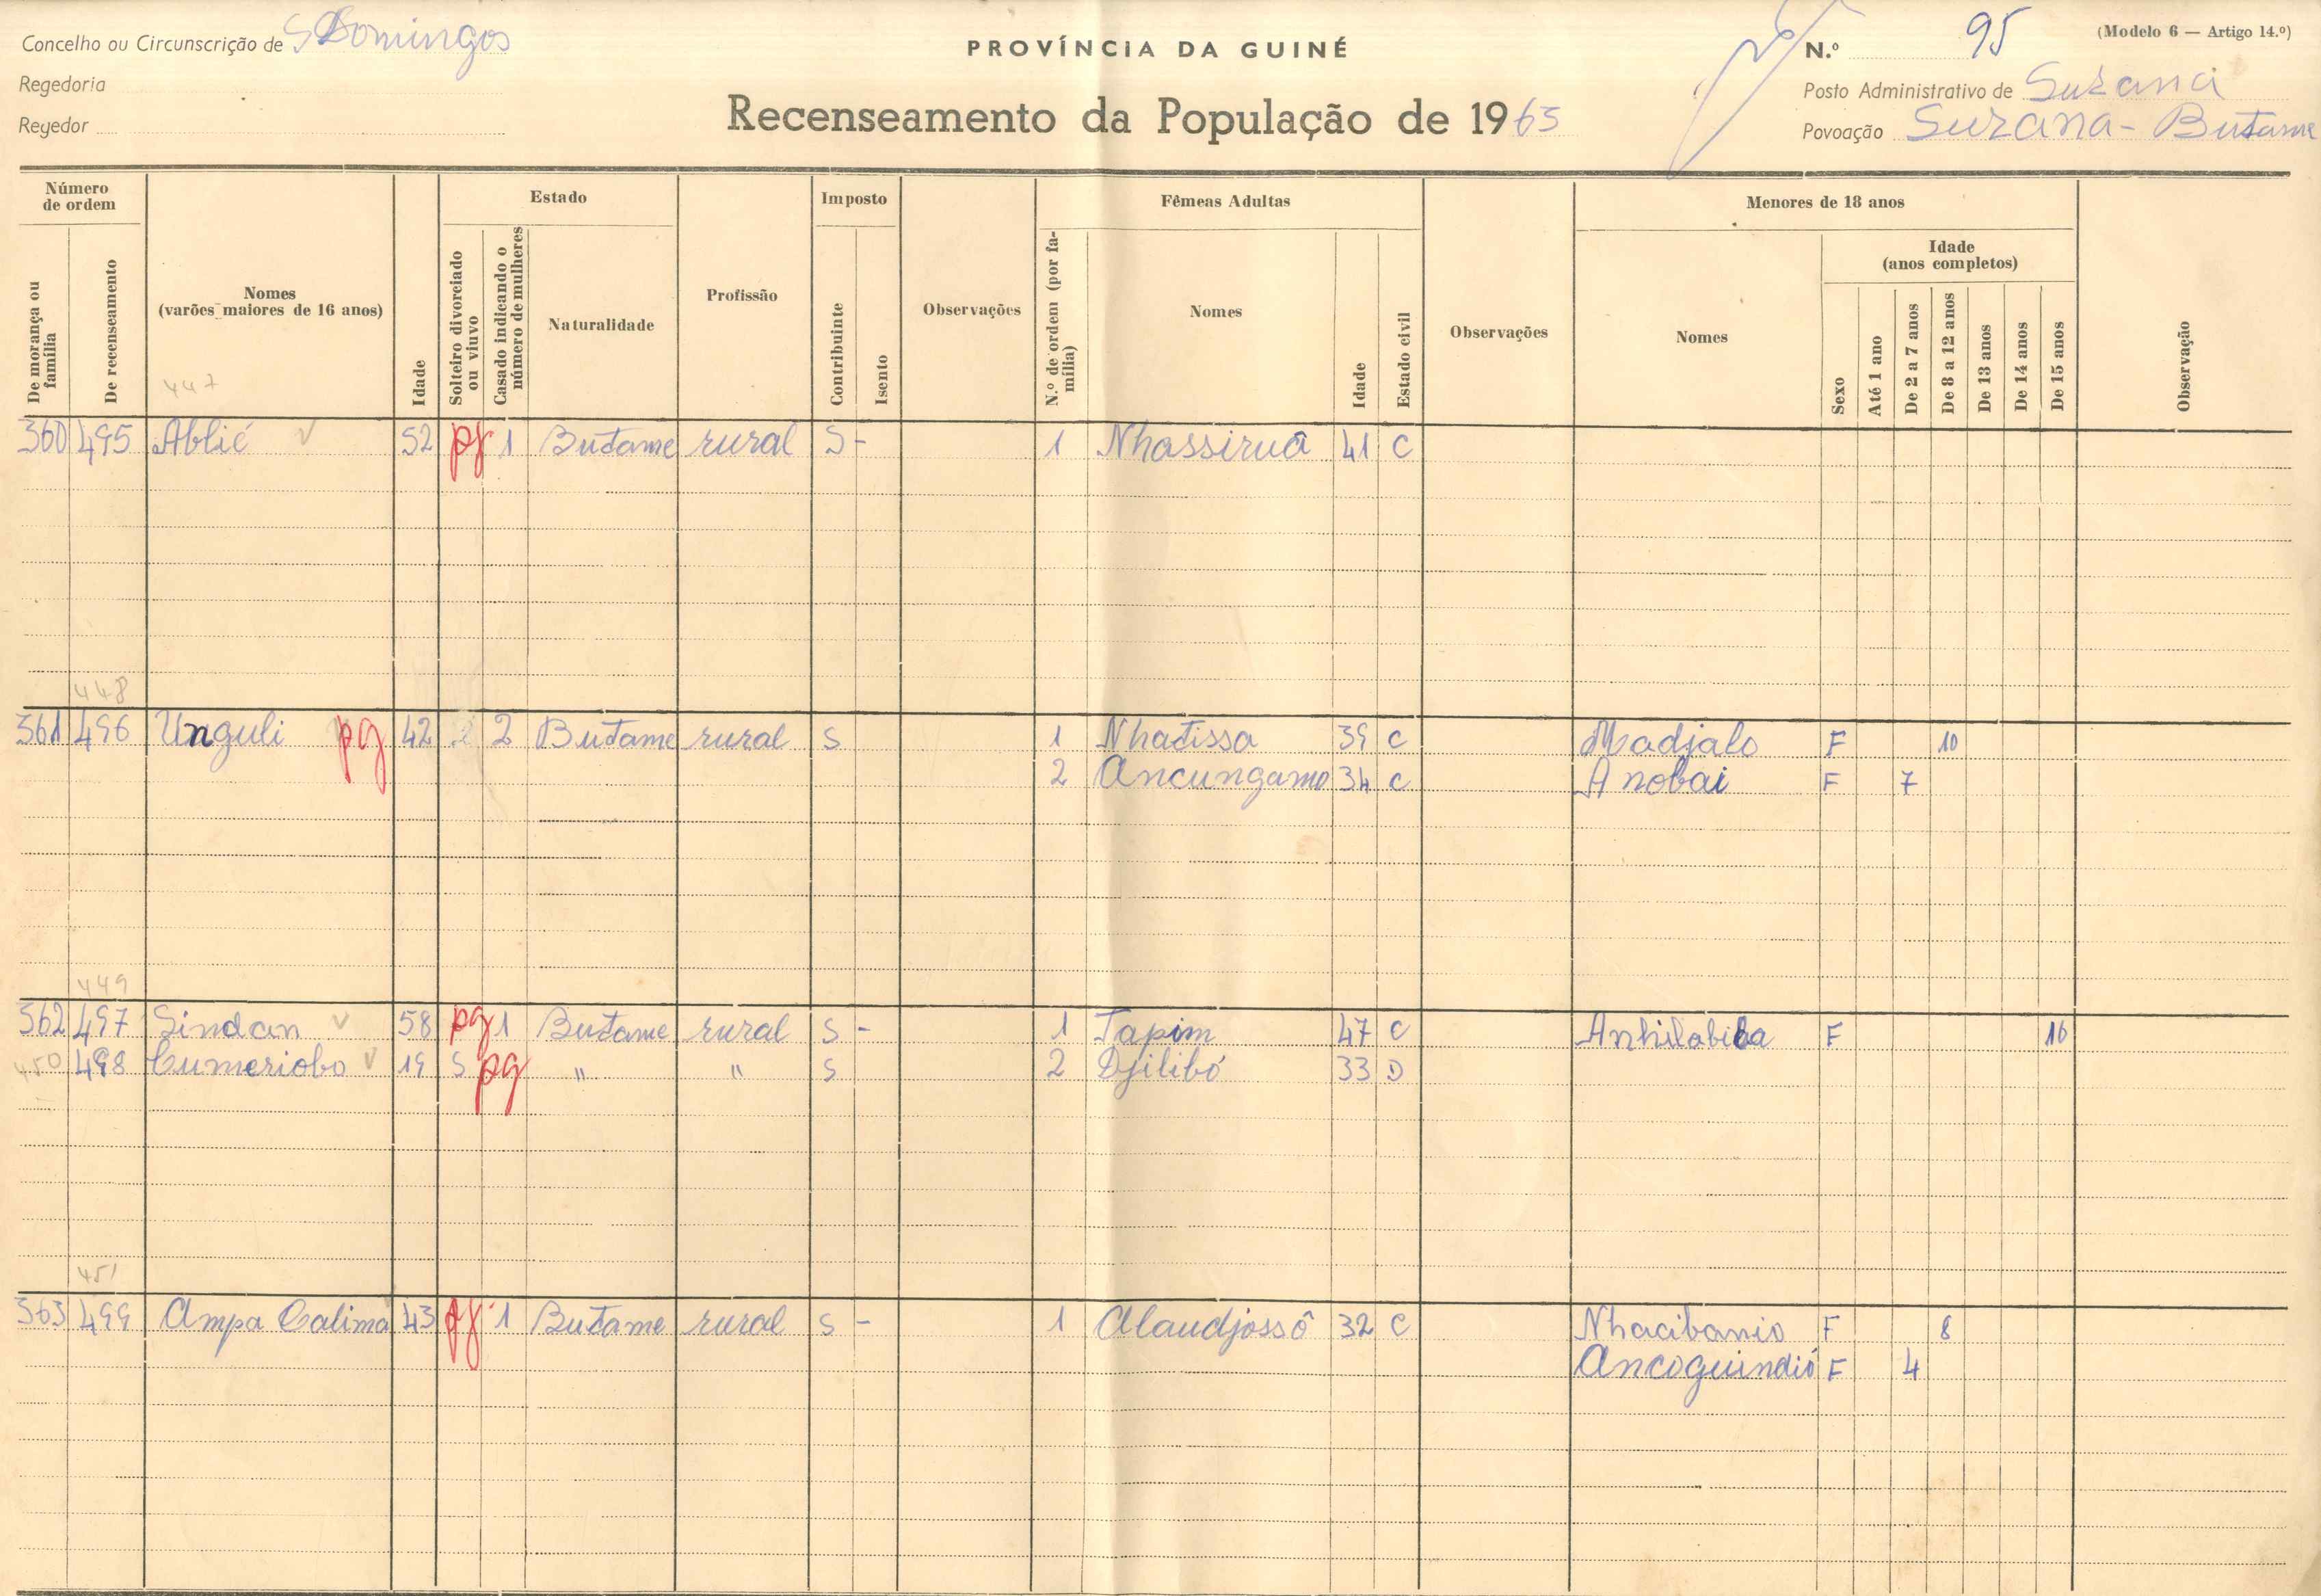 Concelho ou Circunscrição de S Domingos
Regedoria
Regedor
PROVÍNCIA DA GUINÉ
Recenseamento da População de 1963
(Modelo 6 — Artigo 14.º)
N.º 95
Posto Administrativo de Suzana
Povoação Suzana - Butame
Número de ordem
De morança ou família
De recenseamento
Nomes
(varões maiores de 16 anos)
447
Idade
Estado
Solteiro divorciado ou viuvo
Casado indicando o número de mulheres
Naturalidade
Profissão
Imposto
Contribuinte
Isento
Observações
Fêmeas Adultas
N.º de ordem (por família)
Nomes
Idade
Estado civil
Observações
Menores de 18 anos
Nomes
Sexo
Idade
(anos completos)
Até 1 ano
De 2 a 7 anos
De 8 a 12 anos
De 13 anos
De 14 anos
De 15 anos
Observação
360 495 Ablié 52 pg 1 Butame rural S - 1 Nhassiruâ 41 C
448
361 496 Unguli pg 42 2 Butame rural S 1 Nhatissa 39 C Madjalo F 10
2 Ancungamo 34 C Anobai F 7
449
362 497 Sindan 58 pg 1 Butame rural S - 1 Tapim 47 C F 16
450 498 Cumeriobo 19 S pg " " S 2 Djilibó 33 D
451
363 499 Ampa Calima 43 pg 1 Butame rural S - 1 Alaudjossô 32 C Nhacibanio F 8
Ancoguindió F 4